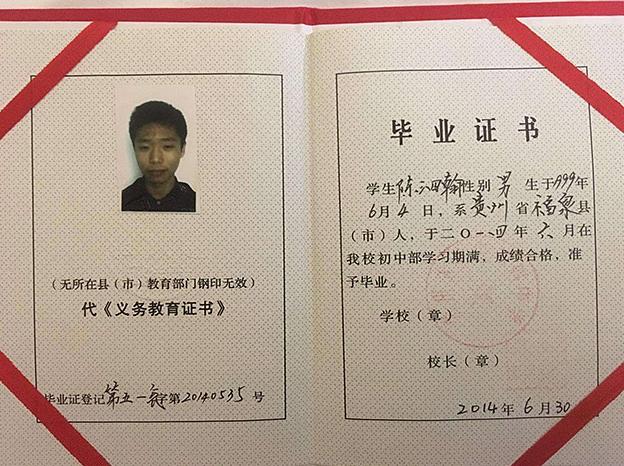 (无所在县(市)教育部门钢印无效)
代《义务教育证书》
毕业证登记第五一 字第20140535 号
毕业证书
学生陈 瀚性别 男 生于1999年
6月4日,系贵州省福泉县
(市)人,于二〇一四年六月在
我校初中部学习期满,成绩合格,准
予毕业。
学校(章)
校长(章)
2014年6月30